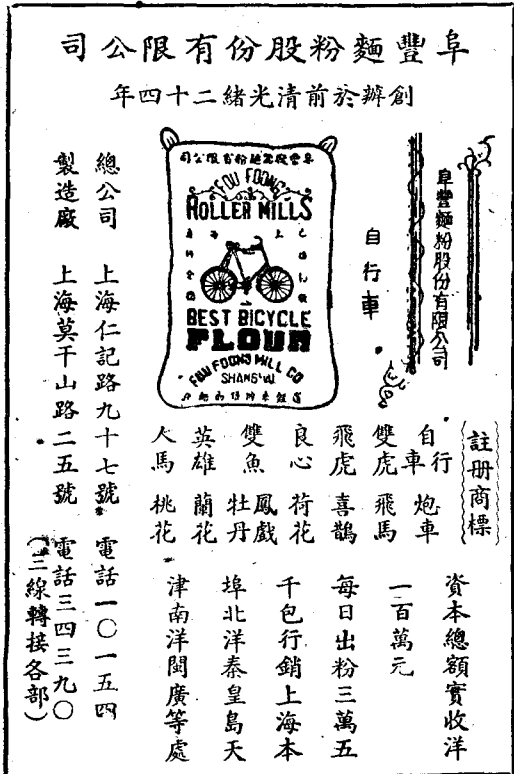 阜豐麵粉股份有限公司
創辦於前清光緒二十四年
阜豐麵粉股份有限公司
自行車
FOU FOONG
ROLLER MILLS
BEST BICYCLE
FLOUR
FOU FOONG MILL CO
SHANG'AI
註册商標
自行車 炮車
雙虎 飛馬
飛虎 喜鵲
良心 荷花
雙魚 鳳戲牡丹
英雄 蘭花
人馬 桃花
資本總額實收洋
一百萬元
每日出粉三萬五
千包行銷上海本
埠北洋秦皇島天
津南洋閩廣等處
總公司 上海仁記路九十七號 電話一〇一五四
製造廠 上海莫干山路二五號 電話三四三九〇
(三線轉接各部)